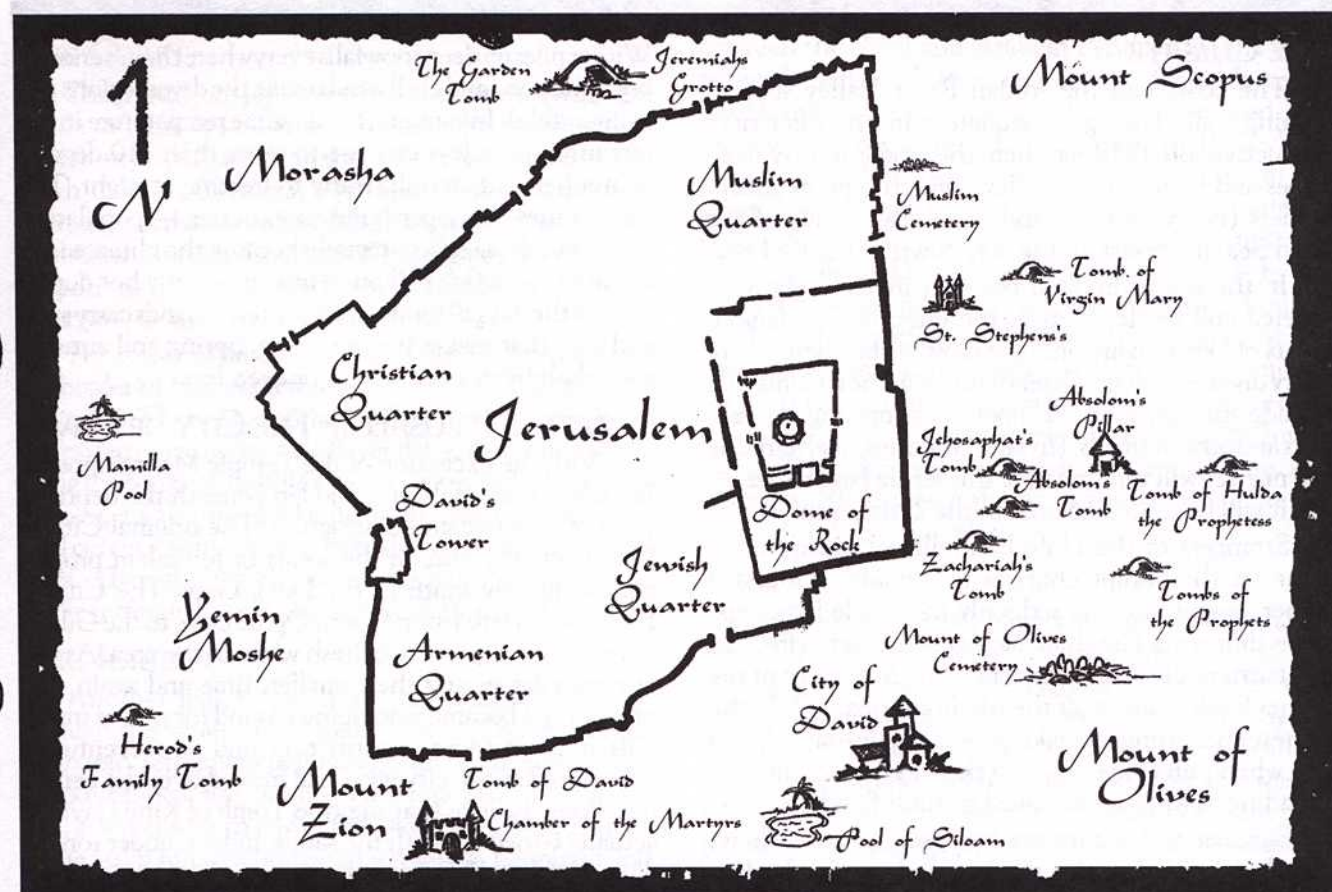 The Garden
Tomb
Jeremiahs
Grotto
Mount Scopus
N
Morasha
Muslim
Quarter
Muslim
Cemetery
Tomb of
Virgin Mary
St. Stephens's
Christian
Quarter
Jerusalem
Absolom's
Pillar
Jehosaphat's
Tomb
Absolom's
Tomb
Tomb of Hulda
the Prophetess
Mamilla
Pool
David's
Tower
Dome of
the Rock
Jewish
Quarter
Zachariah's
Tomb
Tombs of
the Prophets
Yemin
Moshe
Armenian
Quarter
Mount of Olives
Cemetery
City of
David
Herod's
Family Tomb
Mount
Zion
Tomb of David
Chamber of the Martyrs
Pool of Siloam
Mount of
Olives